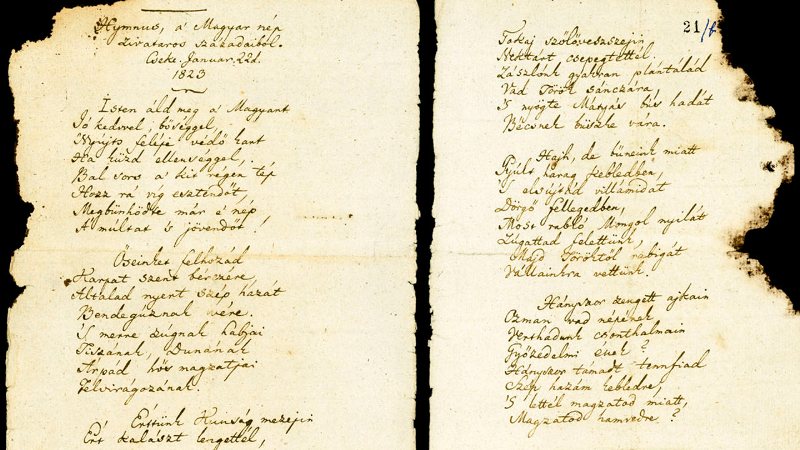 Hymnus, a' Magyar nép
Zivataros századaiból.
Cseke, Januar. 22d.
1823
Isten áld meg a' Magyart
Jó kedvvel, bőséggel,
Nyújts feléje védő kart
Ha küzd ellenséggel,
Bal sors a' kit régen tép
Hozz rá víg esztendőt,
Megbünhödte már e' nép
A' múltat 's jövendőt!
Őseinket felhozád
Kárpát szent bérczére,
Általad nyert szép hazát
Bendegúznak vére.
'S merre zúgnak habjai
Tiszának, Dunának
Árpád hős magzatjai
Felvirágozának.
Értünk Kunság mezejin
Ért kalászt lengettél,
21/
Tokaj szőlővesszejin
Nektárt csepegtettél.
Zászlónk gyakran plántálád
Vad Török sánczára,
'S nyögte Mátyás bús hadát
Bécsnek büszke vára.
Hajh, de bűneink miatt
Gyúlt harag kebledben,
'S elsújtád villámidat
Dörgő fellegedben,
Most rabló Mongol nyilát
Zúgattad felettünk,
Majd Töröktől rabigát
Vállainkra vettünk.
Hányszor zengett ajkain
Ozman vad népének
Vert hadunk csonthalmain
Győzedelmi ének?
Hányszor támadt tenn fiad
Szép hazám kebledre,
'S lettél magzatod miatt,
Magzatod hamvvedre?